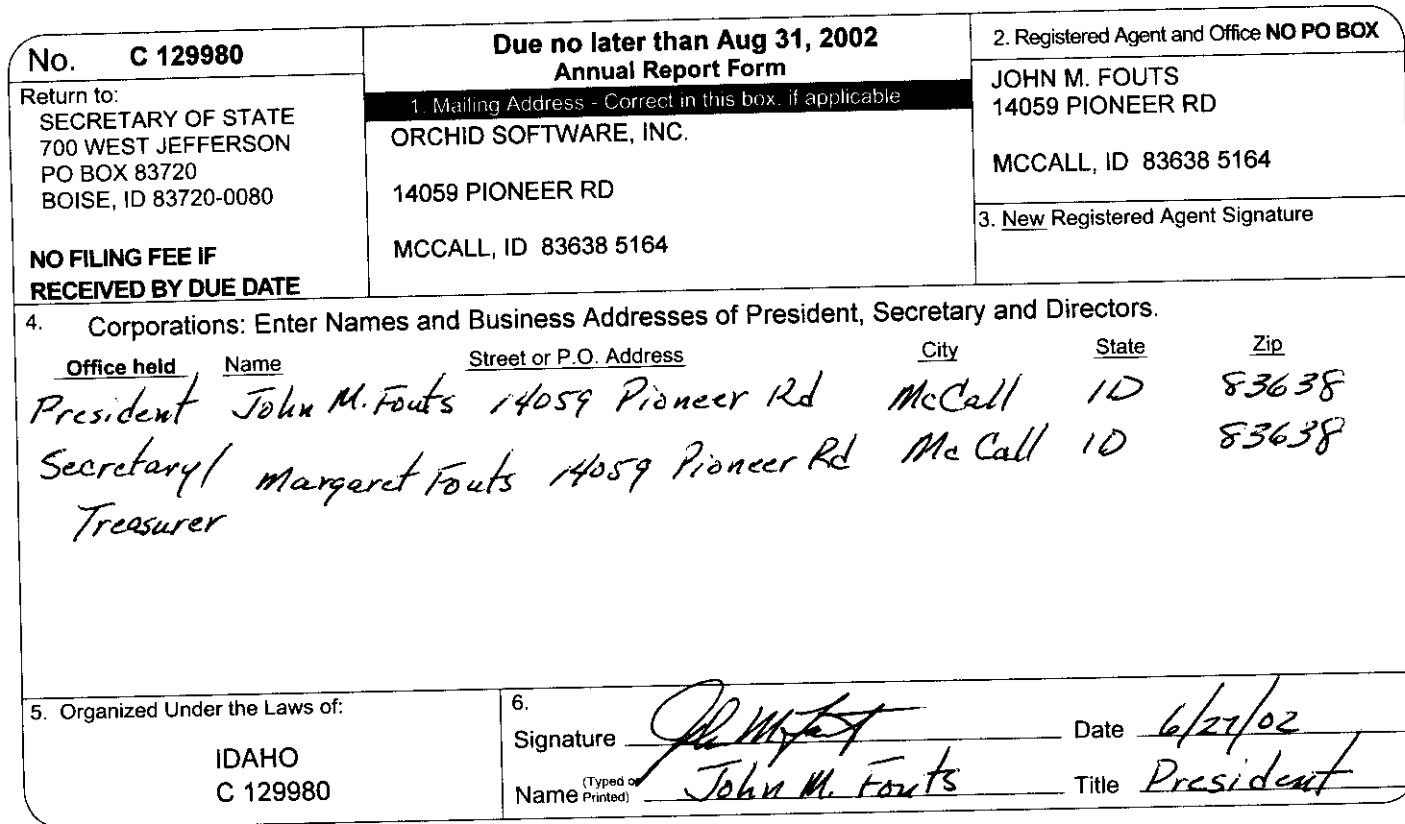 No. C 129980
Return to:
SECRETARY OF STATE
700 WEST JEFFERSON
PO BOX 83720
BOISE, ID 83720-0080
NO FILING FEE IF
RECEIVED BY DUE DATE
Due no later than Aug 31, 2002
Annual Report Form
1. Mailing Address - Correct in this box, if applicable
ORCHID SOFTWARE, INC.
14059 PIONEER RD
MCCALL, ID 83638 5164
2. Registered Agent and Office NO PO BOX
JOHN M. FOUTS
14059 PIONEER RD
MCCALL, ID 83638 5164
3. New Registered Agent Signature
4. Corporations: Enter Names and Business Addresses of President, Secretary and Directors.
Office held Name Street or P.O. Address City State Zip
President John M. Fouts 14059 Pioneer Rd McCall ID 83638
Secretary/ Margaret Fouts 14059 Pioneer Rd McCall ID 83638
Treasurer
5. Organized Under the Laws of:
IDAHO
C 129980
6.
Signature John M Fouts Date 6/27/02
Name (Typed or Printed) John M. Fouts Title President